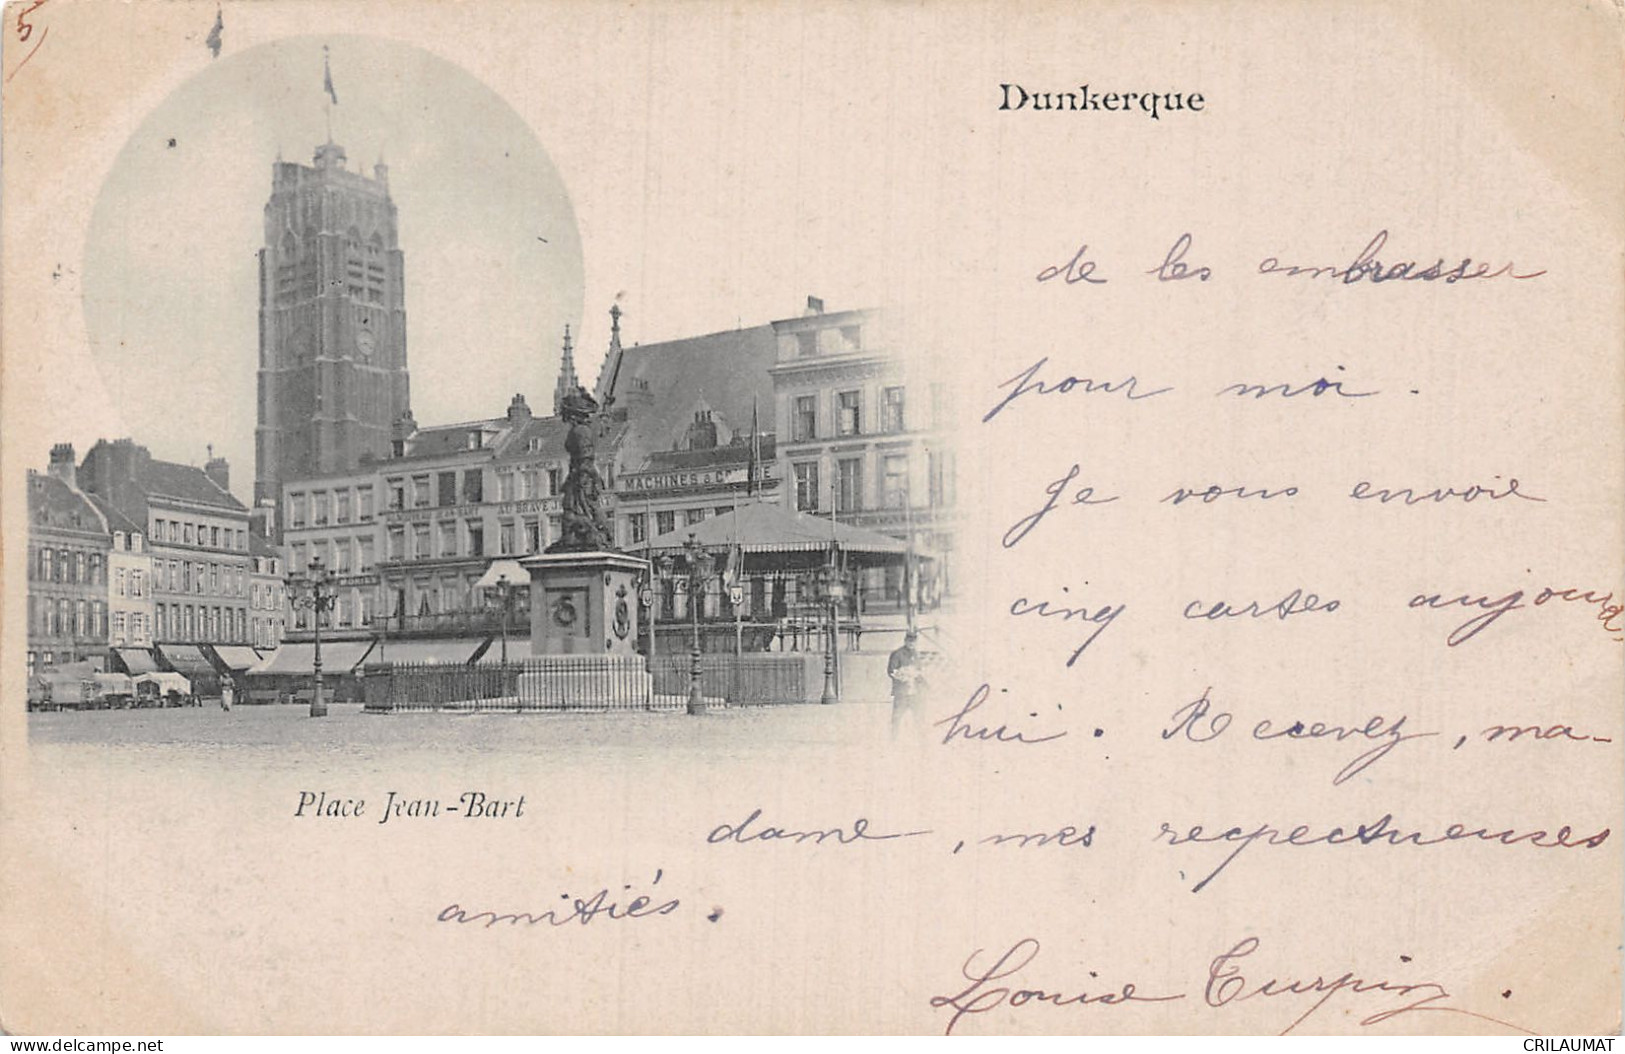 5)
Dunkerque
MACHINES à C
AU BRAVE J
Place Jean-Bart
de les embrasser
pour moi.
Je vous envoie
cinq cartes aujourd'
hui. Recevez, ma-
dame, mes respectueuses
amitiés.
Louise Turpin.
www.delcampe.net
CRILAUMAT